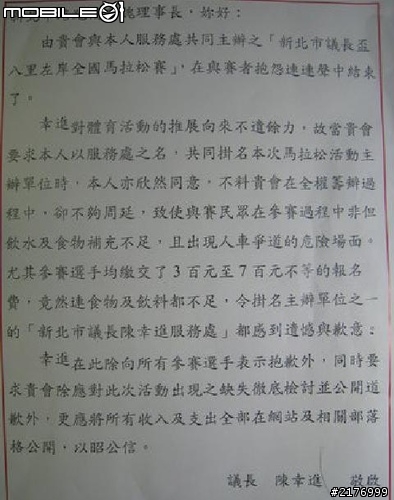 MOBILE01
理事長，妳好：
由貴會與本人服務處共同主辦之「新北市議長盃
八里左岸全國馬拉松賽」，在與賽者抱怨連連聲中結束
了。
幸進對體育活動的推展向來不遺餘力，故當貴會
要求本人以服務處之名，共同掛名本次馬拉松活動主
辦單位時，本人亦欣然同意，不料貴會在全權籌辦過
程中，卻不夠周延，致使與賽民眾在參賽過程中非但
飲水及食物補充不足，且出現人車爭道的危險場面。
尤其參賽選手均繳交了3百元至7百元不等的報名
費，竟然連食物及飲料都不足，令掛名主辦單位之一
的「新北市議長陳幸進服務處」都感到遺憾與歉意：
幸進在此除向所有參賽選手表示抱歉外，同時要
求貴會除應對此次活動出現之缺失徹底檢討並公開道
歉外，更應將所有收入及支出全部在網站及相關部落
格公開，以昭公信。
議長 陳幸進 敬啟
#2176999